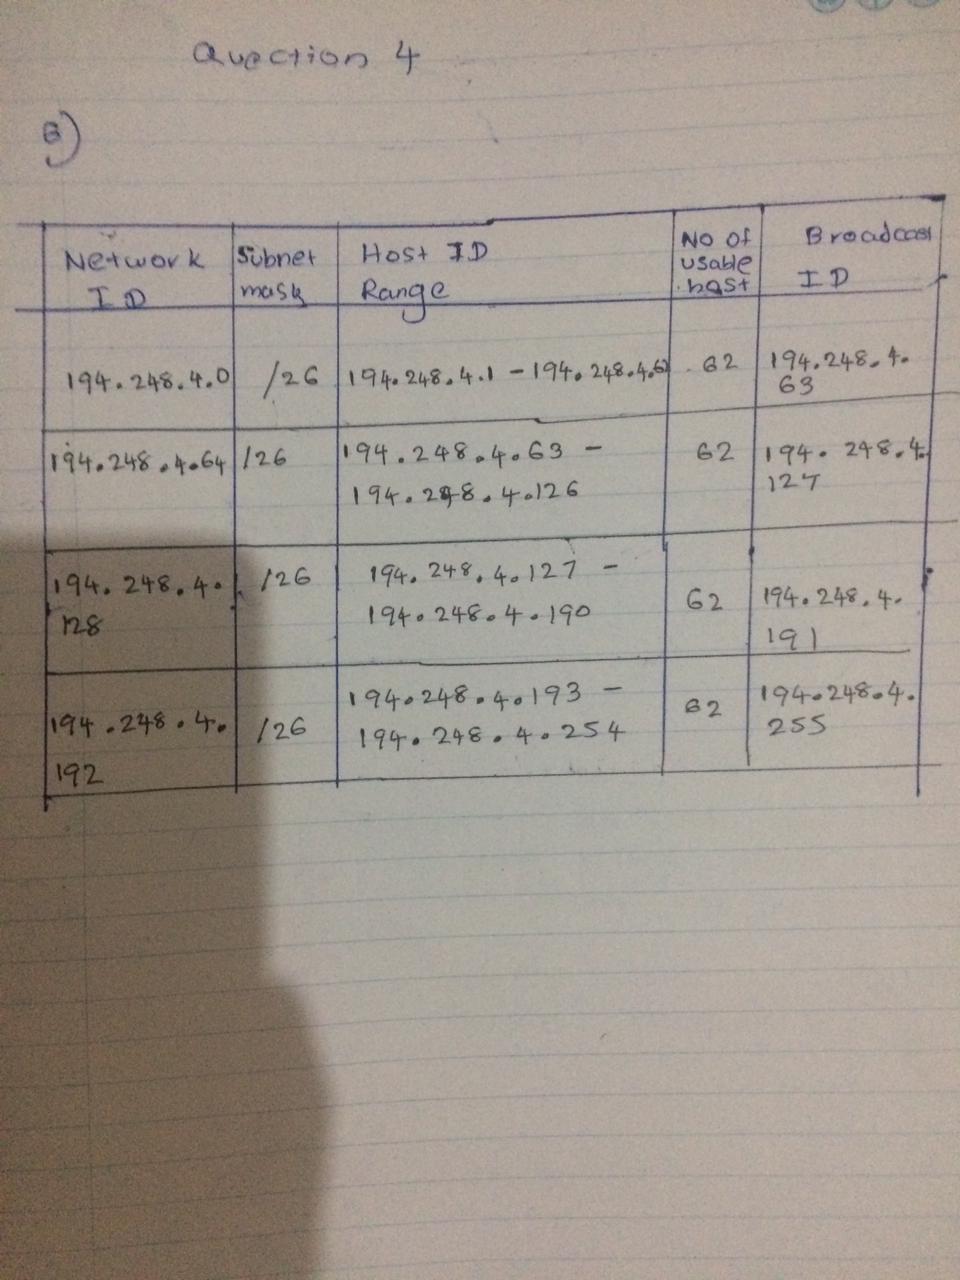 Quection 4
B)
Network ID | Subnet mask | Host ID Range | No Of usable host | Broadcast ID
194.248.4.0 | /26 | 194.248.4.1 - 194.248.4.62 | 62 | 194.248.4.63
194.248.4.64 | /26 | 194.248.4.63 - 194.248.4.126 | 62 | 194.248.4.127
194.248.4.128 | /26 | 194.248.4.127 - 194.248.4.190 | 62 | 194.248.4.191
194.248.4.192 | /26 | 194.248.4.193 - 194.248.4.254 | 62 | 194.248.4.255